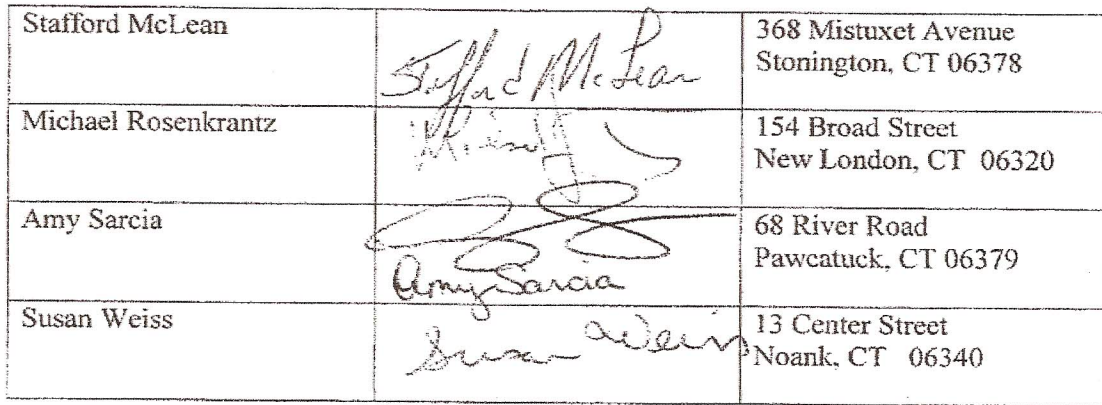 Stafford McLean
Stafford McLean
368 Mistuxet Avenue
Stonington, CT 06378
Michael Rosenkrantz
154 Broad Street
New London, CT 06320
Amy Sarcia
Amy Sarcia
68 River Road
Pawcatuck, CT 06379
Susan Weiss
Susan Weiss
13 Center Street
Noank, CT 06340